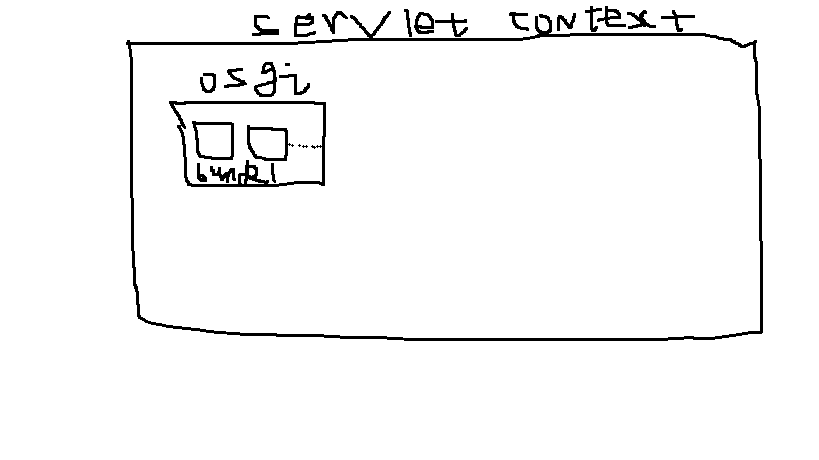 servlet context
osgi
bundel